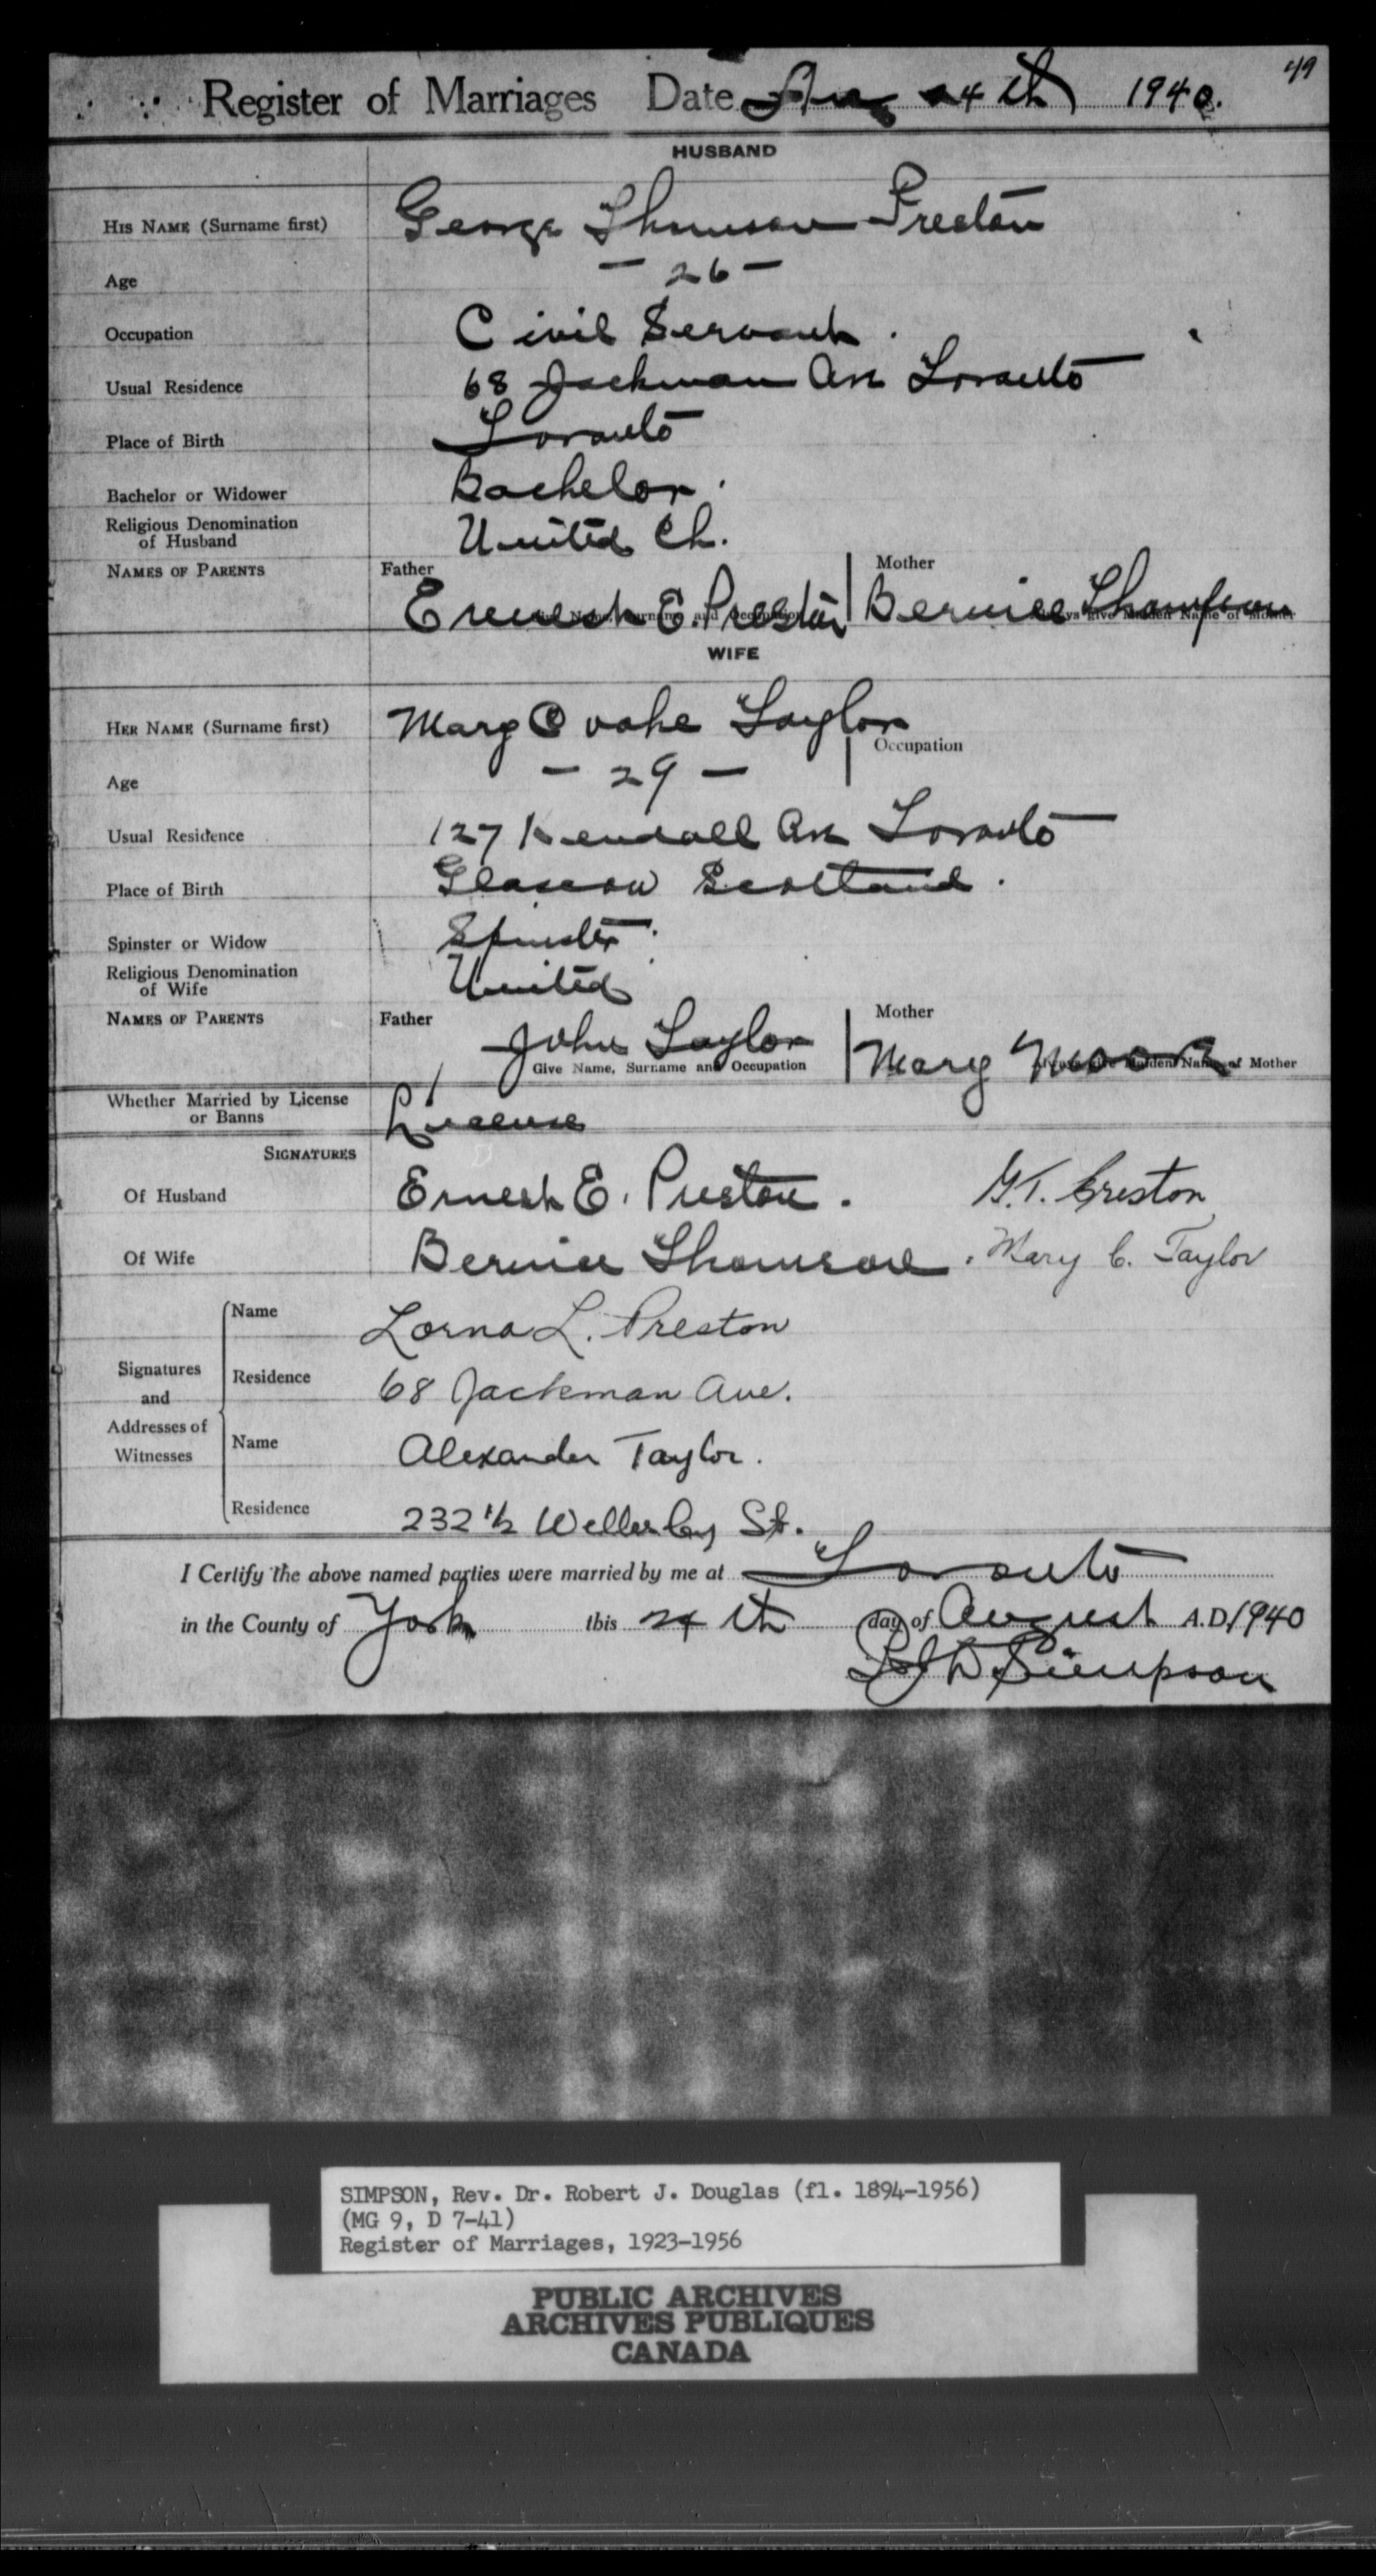 49
Register of Marriages Date Aug 24th 1940.
HUSBAND
HIS NAME (Surname first) George Thomson Preston
Age - 26 -
Occupation Civil Servant.
Usual Residence 68 Jackman Ave Toronto
Place of Birth Toronto
Bachelor or Widower Bachelor.
Religious Denomination
of Husband United Ch.
NAMES OF PARENTS Father Mother
Ernest E. Preston Bernice Thomson
WIFE
HER NAME (Surname first) Mary Taylor
Occupation
Age - 29 -
Usual Residence 127 Kendall Ave Toronto
Place of Birth Glascow Scotland.
Spinster or Widow Spinster.
Religious Denomination
of Wife United
NAMES OF PARENTS Father Mother
John Taylor Mary Moore
Give Name, Surname and Occupation Always Give Maiden Name of Mother
Whether Married by License
or Banns License
SIGNATURES
Of Husband Ernest E. Preston. G.T. Preston
Of Wife Bernice Thomson. Mary C. Taylor
Name Lorna L. Preston
Signatures
and
Addresses of
Witnesses
Residence 68 Jackman Ave.
Name Alexander Taylor.
Residence 232 1/2 St.
I Certify the above named parties were married by me at Toronto
in the County of York this 24th day of August A.D. 1940
R J D Simpson
SIMPSON, Rev. Dr. Robert J. Douglas (fl. 1894-1956)
(MG 9, D 7-41)
Register of Marriages, 1923-1956
PUBLIC ARCHIVES
ARCHIVES PUBLIQUES
CANADA